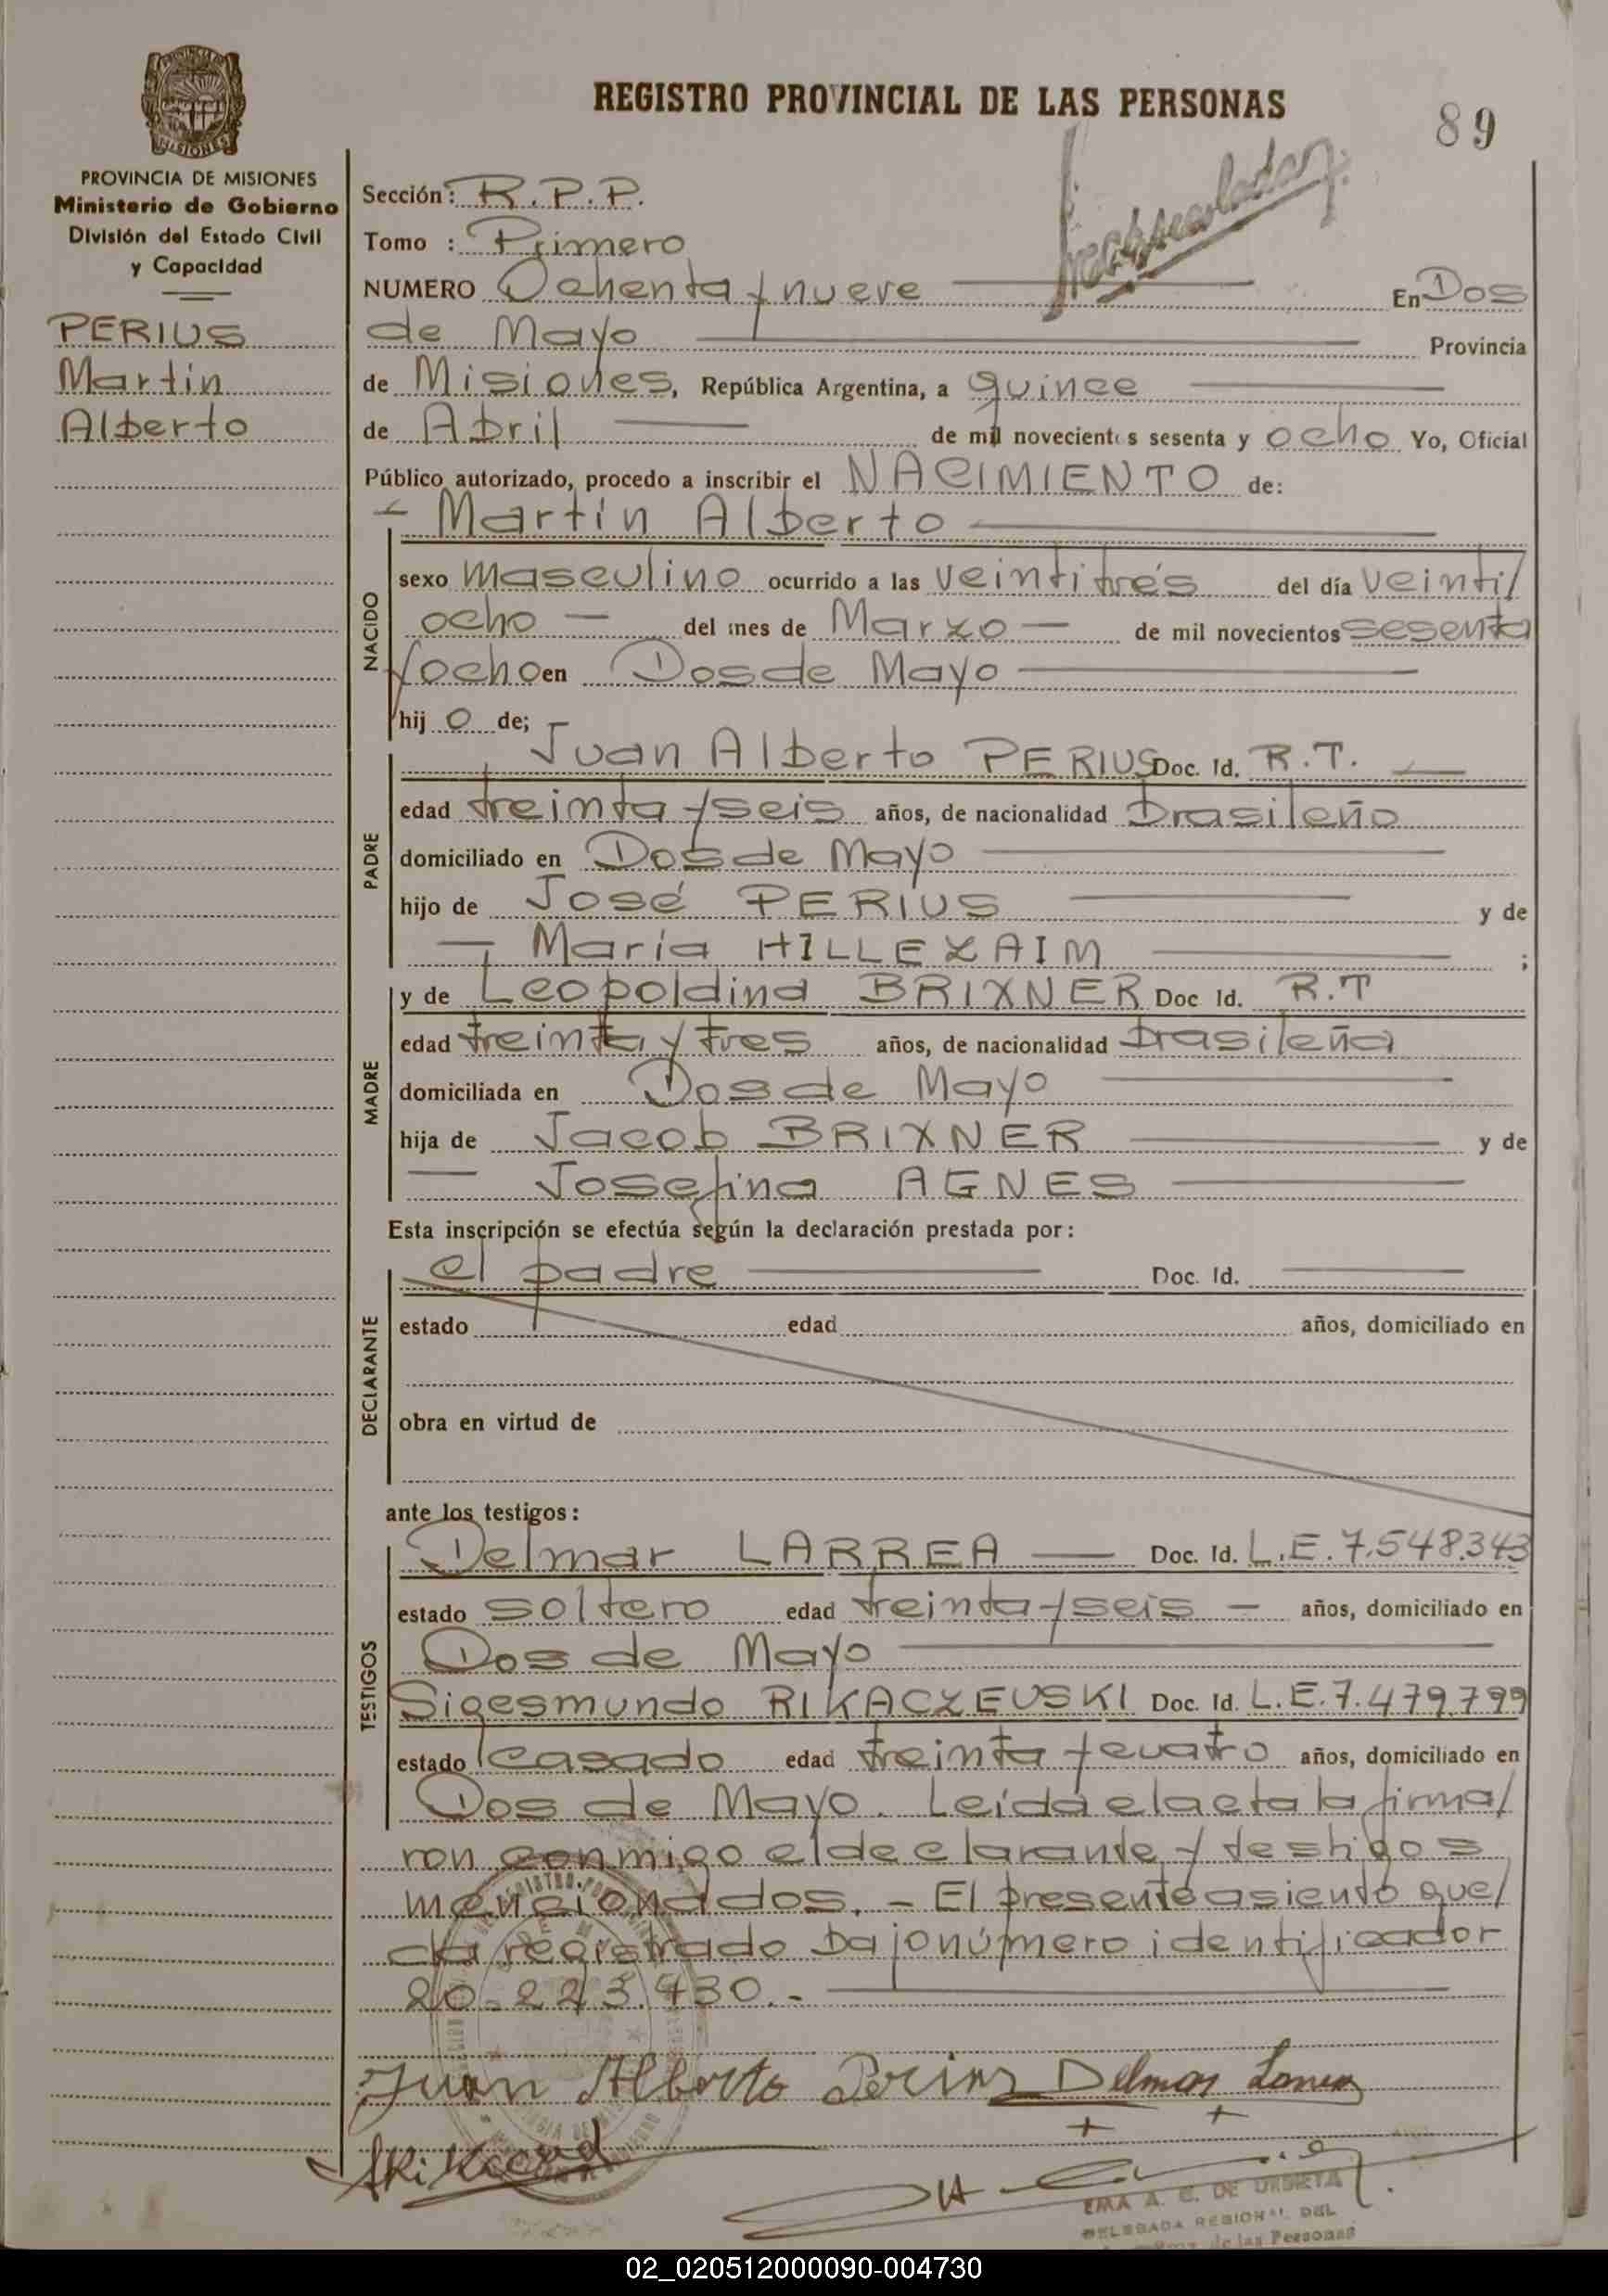 REGISTRO PROVINCIAL DE LAS PERSONAS
89
MISIONES
PROVINCIA DE MISIONES
Ministerio de Gobierno
División del Estado Civil
y Capacidad
PERIUS
Martín
Alberto
Sección: R.P.P.
Tomo : Primero
NUMERO Ochenta y nueve En Dos
de Mayo Provincia
de Misiones, República Argentina, a quince
de Abril de mil novecientos sesenta y ocho Yo, Oficial
Público autorizado, procedo a inscribir el NACIMIENTO de:
- Martín Alberto
NACIDO
sexo masculino ocurrido a las veintitrés del día veinti/
ocho - del mes de Marzo - de mil novecientos sesenta
y ocho en Dos de Mayo
hij o de;
PADRE
Juan Alberto PERIUS Doc. Id. R.T.
edad treinta y seis años, de nacionalidad brasileño
domiciliado en Dos de Mayo
hijo de José PERIUS y de
- María HILLEZAIM ;
MADRE
y de Leopoldina BRIXNER Doc Id. R.T
edad treinta y tres años, de nacionalidad brasileña
domiciliada en Dos de Mayo
hija de Jacob BRIXNER y de
- Josefina AGNES
Esta inscripción se efectúa según la declaración prestada por:
DECLARANTE
el padre Doc. Id.
estado edad años, domiciliado en
obra en virtud de
ante los testigos:
TESTIGOS
Delmar LARREA - Doc. Id. L.E. 7.548.343
estado soltero edad treinta y seis - años, domiciliado en
Dos de Mayo
Sigesmundo RIKACZEUSKI Doc. Id. L.E. 7.479.799
estado casado edad treinta y cuatro años, domiciliado en
Dos de Mayo. Leída el acta la firma/
ron conmigo el declarante y testigos
mencionados. - El presente asiento que/
da registrado bajo número identificador
20-223.430.-
Juan Alberto Perius Delmar Larrea
EMA A. C. DE URBIETA
DELEGADA REGIONAL DEL
de las Personas
02_020512000090-004730